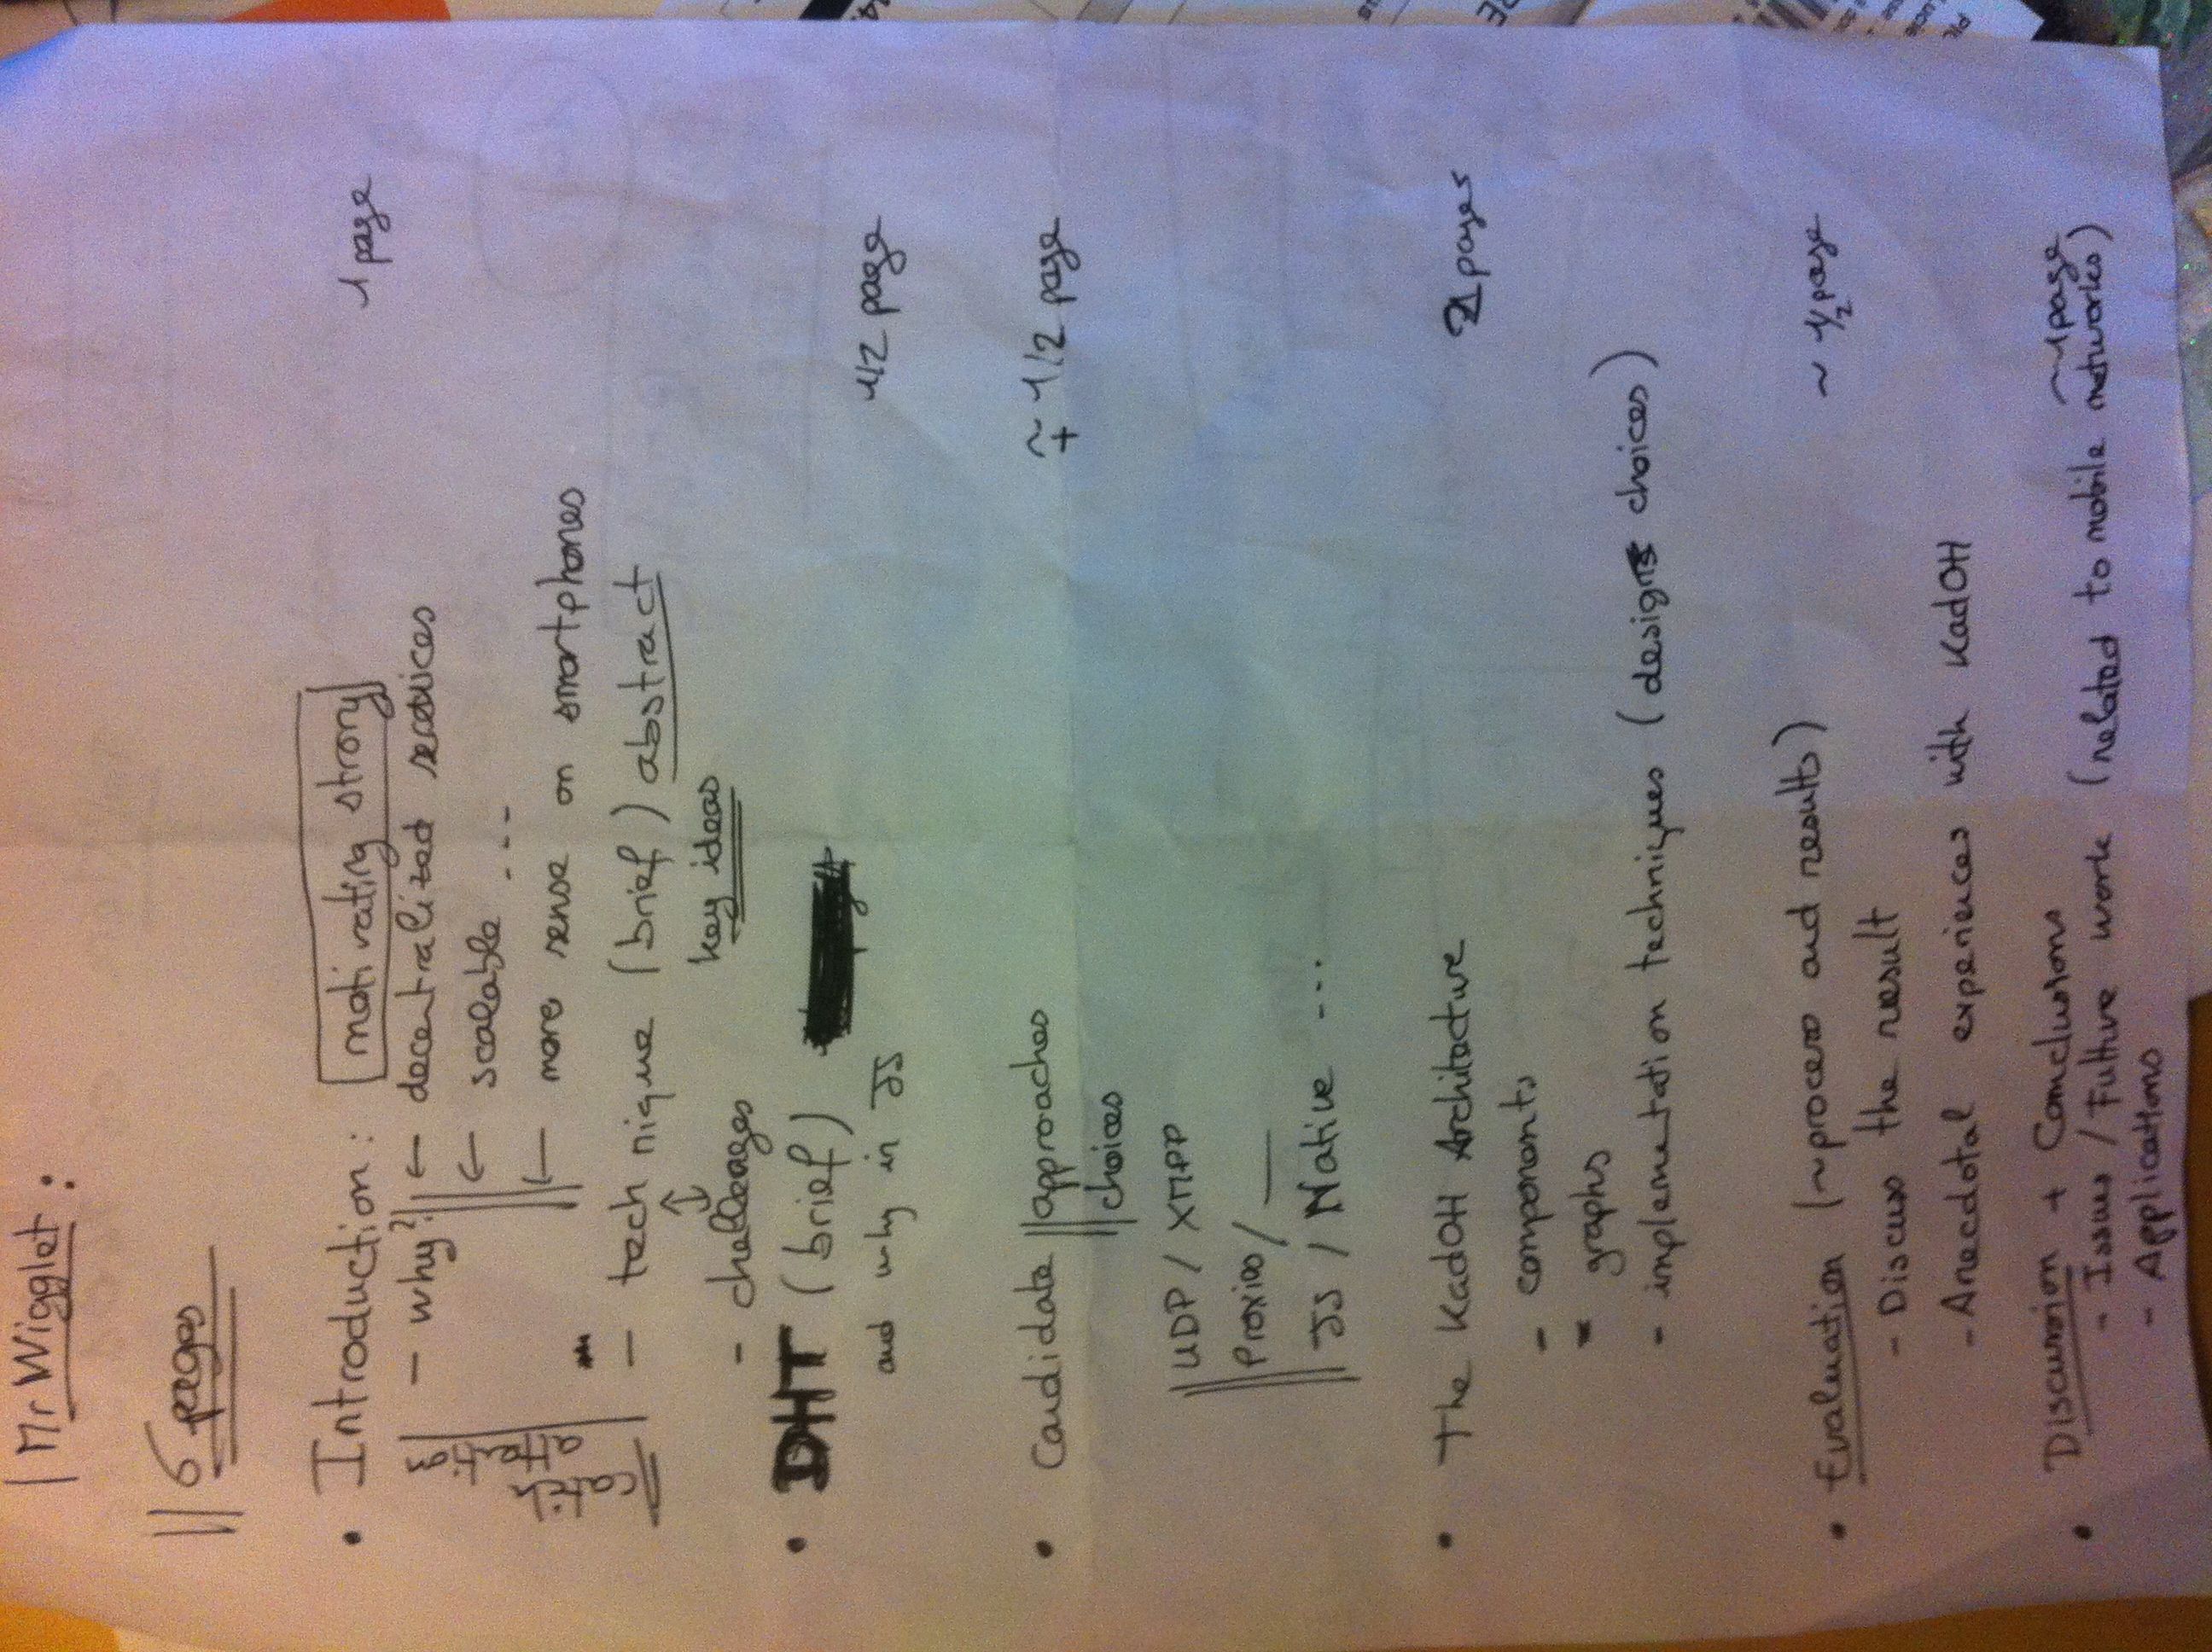 Mr Wigglet :
6 pages
• Introduction : motivating strory 1 page
catch attention
- why? ← decentralized services
← scalable ...
← more sense on smartphones
- technique (brief) abstract
↕ key ideas
- challenges
• DHT (brief)
and why in JS 1/2 page
• Candidate approaches ~+ 1/2 page
choices
UDP / XMPP
Proxies / __
JS / Native ...
• The KadOH Architecture pages
- components
- graphs
- implementation techniques (design choices)
• Evaluation (~process and results) ~ 1/2 page
- Discuss the result
- Anecdotal experiences with KadOH
• Discussion + Conclusions ~1page
- Issues / Future work (related to mobile networks)
- Applications